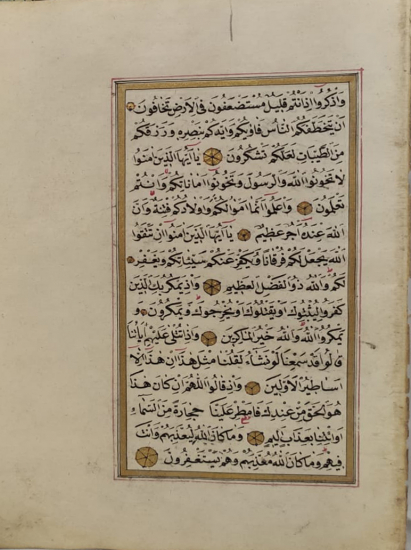 وَاذْكُرُوا اِذْ اَنْتُمْ قَلِيلٌ مُسْتَضْعَفُونَ فِي الْاَرْضِ تَخَافُونَ
اَنْ يَتَخَطَّفَكُمُ النَّاسُ فَاٰوٰيكُمْ وَاَيَّدَكُمْ بِنَصْرِهِ وَرَزَقَكُمْ
مِنَ الطَّيِّبَاتِ لَعَلَّكُمْ تَشْكُرُونَ يَا اَيُّهَا الَّذِينَ اٰمَنُوا
لَا تَخُونُوا اللّٰهَ وَالرَّسُولَ وَتَخُونُوا اَمَانَاتِكُمْ وَاَنْتُمْ
تَعْلَمُونَ وَاعْلَمُوا اَنَّمَا اَمْوَالُكُمْ وَاَوْلَادُكُمْ فِتْنَةٌ وَاَنَّ
اللّٰهَ عِنْدَهُ اَجْرٌ عَظِيمٌ يَا اَيُّهَا الَّذِينَ اٰمَنُوا اِنْ تَتَّقُوا
اللّٰهَ يَجْعَلْ لَكُمْ فُرْقَانًا وَيُكَفِّرْ عَنْكُمْ سَيِّئَاتِكُمْ وَيَغْفِرْ
لَكُمْ وَاللّٰهُ ذُو الْفَضْلِ الْعَظِيمِ وَاِذْ يَمْكُرُ بِكَ الَّذِينَ
كَفَرُوا لِيُثْبِتُوكَ اَوْ يَقْتُلُوكَ اَوْ يُخْرِجُوكَ وَيَمْكُرُونَ وَ
يَمْكُرُ اللّٰهُ وَاللّٰهُ خَيْرُ الْمَاكِرِينَ وَاِذَا تُتْلٰى عَلَيْهِمْ اٰيَاتُنَا
قَالُوا قَدْ سَمِعْنَا لَوْ نَشَاءُ لَقُلْنَا مِثْلَ هٰذَا اِنْ هٰذَا اِلَّا
اَسَاطِيرُ الْاَوَّلِينَ وَاِذْ قَالُوا اللّٰهُمَّ اِنْ كَانَ هٰذَا
هُوَ الْحَقَّ مِنْ عِنْدِكَ فَاَمْطِرْ عَلَيْنَا حِجَارَةً مِنَ السَّمَاءِ
اَوِ ائْتِنَا بِعَذَابٍ اَلِيمٍ وَمَا كَانَ اللّٰهُ لِيُعَذِّبَهُمْ وَاَنْتَ
فِيهِمْ وَمَا كَانَ اللّٰهُ مُعَذِّبَهُمْ وَهُمْ يَسْتَغْفِرُونَ